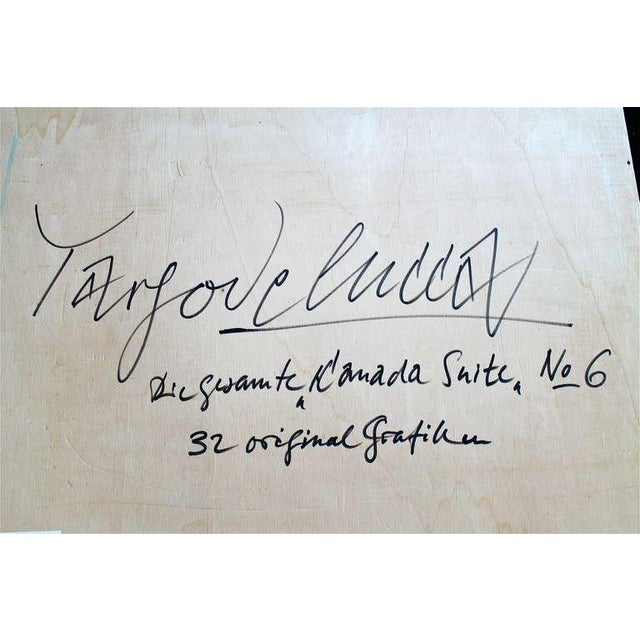 YargoDeLucca
Die gesamte „Kanada Suite„ No 6
32 original Grafiken